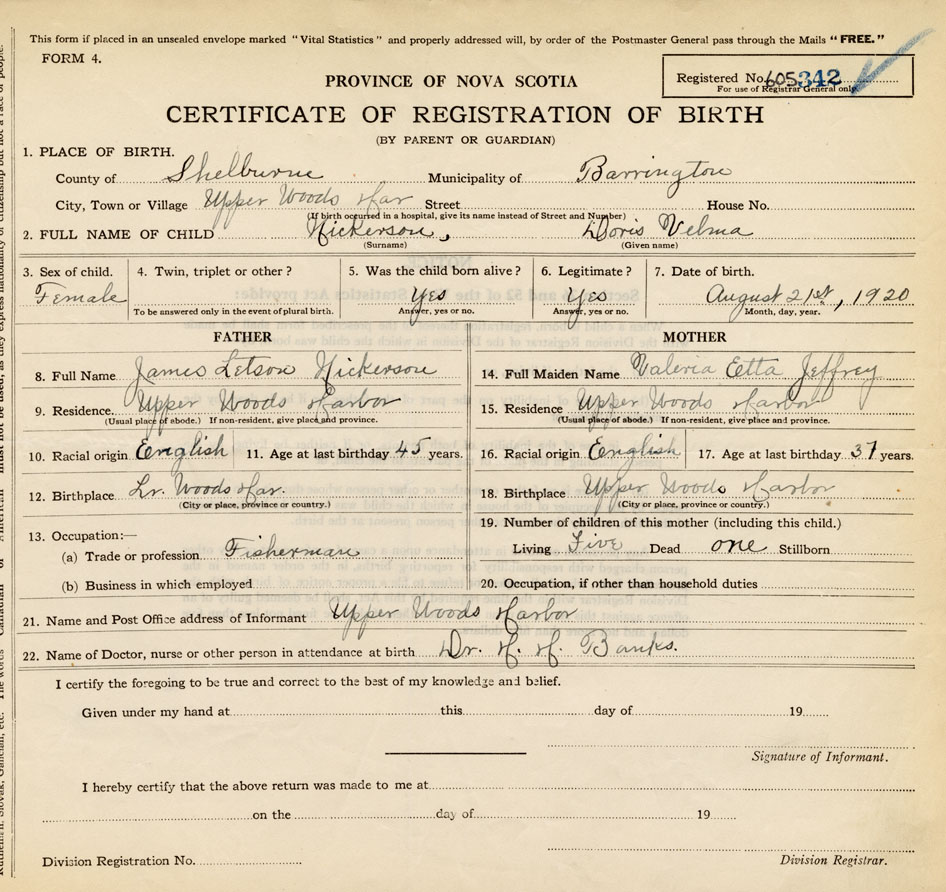 This form if placed in an unsealed envelope marked "Vital Statistics" and properly addressed will, by order of the Postmaster General pass through the Mails "FREE."
FORM 4.
PROVINCE OF NOVA SCOTIA
Registered No. 605342
For use of Registrar General only.
CERTIFICATE OF REGISTRATION OF BIRTH
(BY PARENT OR GUARDIAN)
1. PLACE OF BIRTH.
County of Shelburne Municipality of Barrington
City, Town or Village Upper Woods Har Street House No.
(If birth occurred in a hospital, give its name instead of Street and Number)
2. FULL NAME OF CHILD Nickerson, Doris Velma
(Surname) (Given name)
3. Sex of child. 4. Twin, triplet or other? 5. Was the child born alive? 6. Legitimate? 7. Date of birth.
Female Yes Yes August 21st, 1920
To be answered only in the event of plural birth. Answer, yes or no. Answer, yes or no. Month, day, year.
FATHER MOTHER
8. Full Name James Letson Nickerson 14. Full Maiden Name Valeria Etta Jeffrey
9. Residence. Upper Woods Harbor 15. Residence Upper Woods Harbor
(Usual place of abode.) If non-resident, give place and province. (Usual place of abode.) If non-resident, give place and province.
10. Racial origin English 11. Age at last birthday 45 years. 16. Racial origin English 17. Age at last birthday 37 years.
12. Birthplace Lr. Woods Har. 18. Birthplace Upper Woods Harbor
(City or place, province or country.) (City or place, province or country.)
19. Number of children of this mother (including this child.)
13. Occupation:—
(a) Trade or profession Fisherman Living Five Dead one Stillborn
(b) Business in which employed 20. Occupation, if other than household duties
21. Name and Post Office address of Informant Upper Woods Harbor
22. Name of Doctor, nurse or other person in attendance at birth Dr. H. H. Banks.
I certify the foregoing to be true and correct to the best of my knowledge and belief.
Given under my hand at this day of 19
Signature of Informant.
I hereby certify that the above return was made to me at
on the day of 19
Division Registration No. Division Registrar.